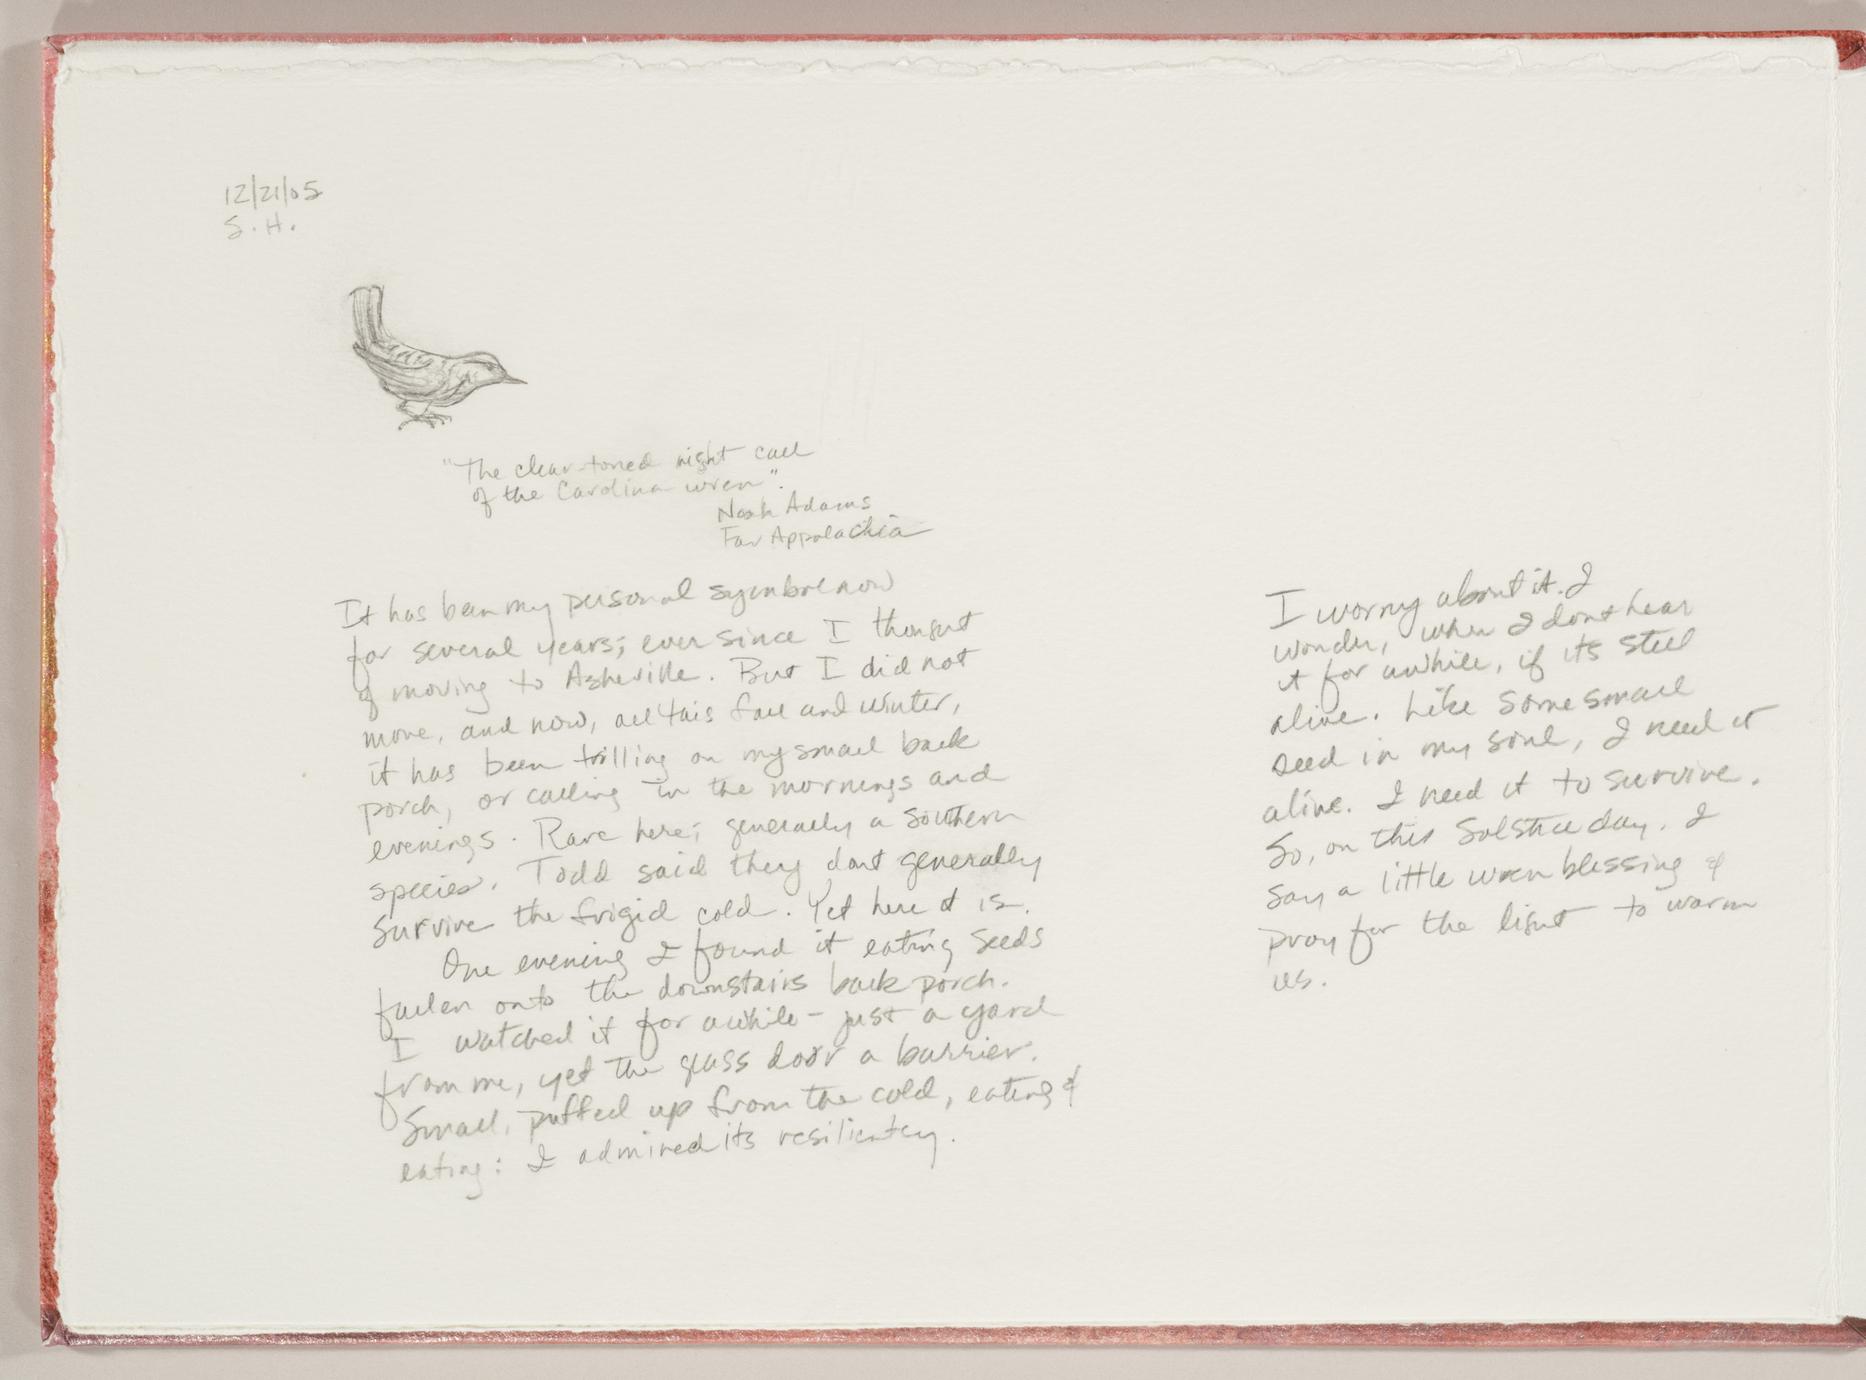 12/21/05
S.H.
"The clear-toned night call
of the Carolina wren".
Noah Adams
Far Appalachia
It has been my personal symbol now
for several years; ever since I thought
of moving to Asheville. But I did not
move, and now, all this fall and winter,
it has been trilling on my small back
porch, or calling in the mornings and
evenings. Rare here; generally a southern
species. Todd said they dont generally
survive the frigid cold. Yet here it is.
One evening I found it eating seeds
fallen onto the downstairs back porch.
I watched it for awhile - just a yard
from me, yet the glass door a barrier.
Small, puffed up from the cold, eating &
eating: I admired its resiliency.
I worry about it. I
wonder, when I dont hear
it for awhile, if its still
alive. Like some small
seed in my soul, I need it
alive. I need it to survive.
So, on this Solstice day, I
say a little wren blessing &
pray for the light to warm
us.